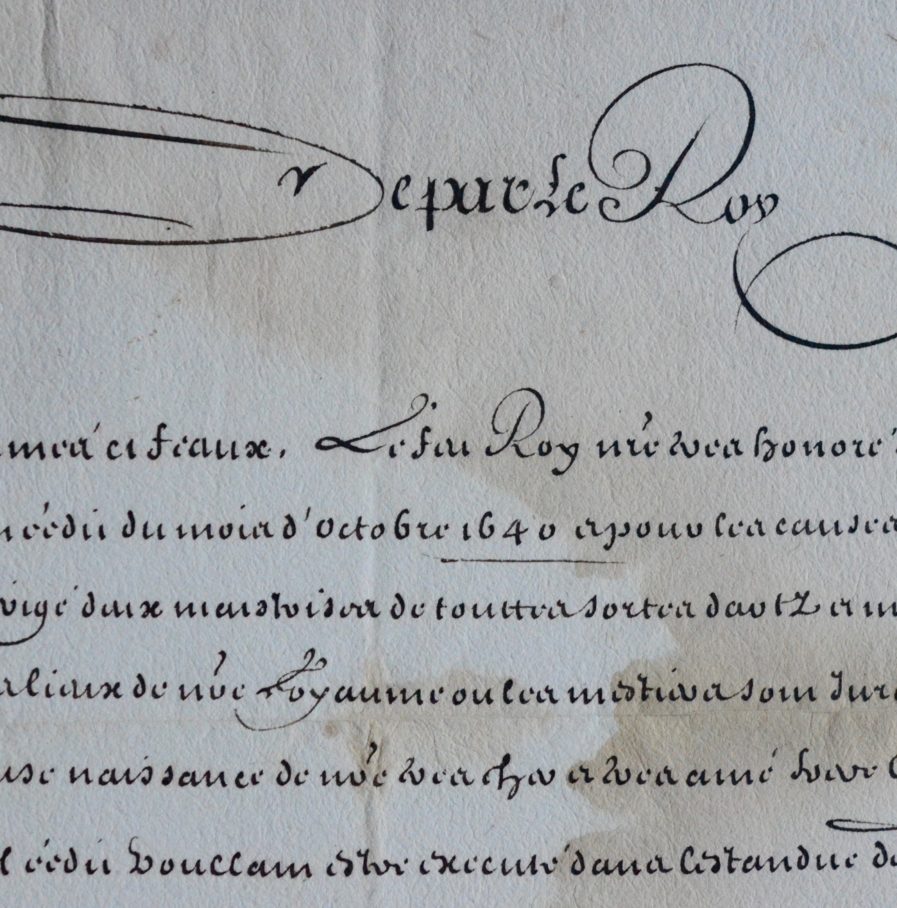 De par le Roy
amez et feaux. Le feu Roy nre tres honoré
éedit du mois d'Octobre 1640 a pour les causes
deux maistrises de touttes sortes d'artz et m
lieux de nre Royaume ou les mestiers sont Jure
naissance de nre tres cher et tres amé frere
éedit voullant estre executé dans lestandue de